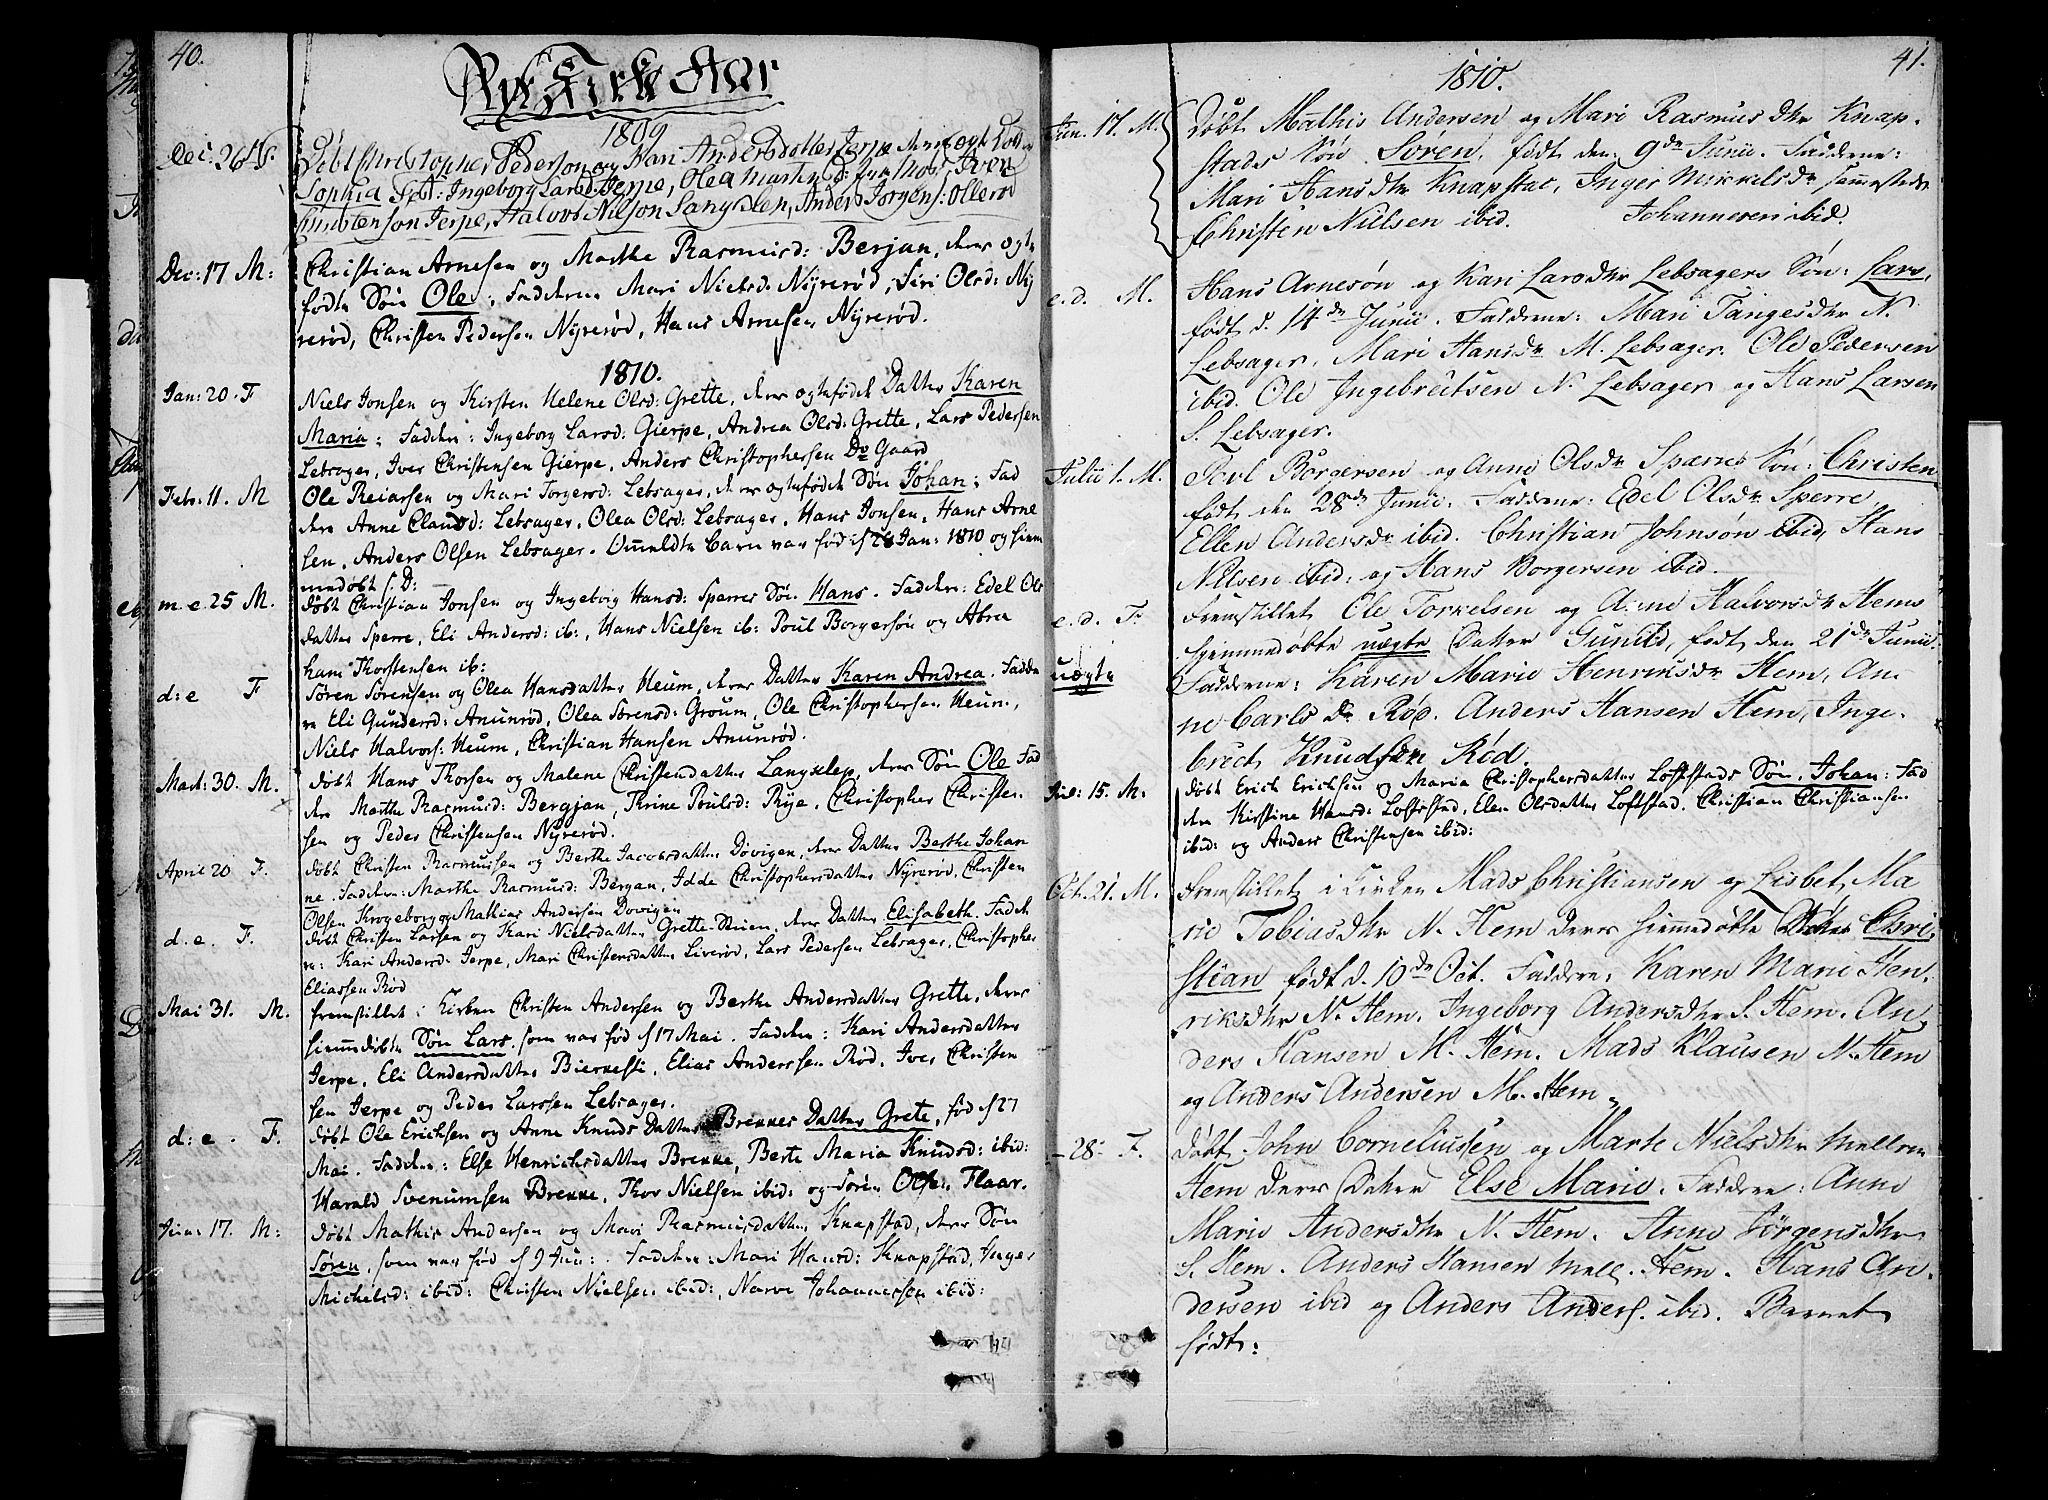 40.
Nye Kirke Aar
1809
Dec: 26 F. Døbt Christopher Pederson og Mari Andersdotter Jerpe deres ægt Dotter
Sophia Fad: Ingeborg Larsd: Jerpe, Olea Martin D: Iver
Christenson Jerpe, Halvor Nilson Langslep, Anders Jørgens: Ollerød
Dec: 17 M: Christian Arnesen og Marthe Rasmusd: Berjan, deres ogte
fødte Søn Ole; Fadderne Mari Nielsd: Nyrerød, Siri Olsd: Ny
rerød, Christen Pedersen Nyrerød, Hans Arnesen Nyrerød.
1810.
Jan: 20. F Niels Jonsen og Kirsten Helene Olsd: Grette, deres ogtefødte Datter Karen
Maria; Faddere: Ingeborg Larsd: Gierpe, Andrea Olsd: Grette, Lars Pedersen
Lebsager, Iver Christensen Gierpe, Anders Christophersen Do Gaard
Febr: 11. M Ole Reiarsen og Mari Torgersd: Lebsager, deres ogtefødte Søn Johan; Fad
dere Anne Clausd: Lebsager, Olea Olsd: Lebsager, Hans Jonsen, Hans Arne
sen, Anders Olsen Lebsager. Ommeldte Barn var fød d 28 Jan: 1810 og hiem
medøbt s. D:
m. e. 25 M. døbt Christian Jonsen og Ingebrig Hansd: Sperres Søn Hans. Faddere: Edel Ols
datter Sperre, Eli Andersd: ib:, Hans Nielsen ib: Poul Borgersøn og Abra
ham Thorstensen ib:
d: e F Søren Sørensen og Olea Hansdatter Heum, deres Datter Karen Andrea. Fadde
re Eli Gundersd: Amunrød, Olea Sørensd: Groum, Ole Christophersen Heum,
Niels Halvors: Heum, Christian Hansen Amunrød.
Mart: 30. M. døbt Hans Thorsen og Malene Christendatter Langslep, deres Søn Ole Fad
dere Marthe Rasmusd: Bergjan, Thrine Poulsd: Rye, Christopher Christen
sen og Peder Christensen Nyrerød.
April 20 F. døbt Christen Rasmussen og Berthe Jacobsdatter Dovigen, deres Datter Berthe Johan
ne. Faddere: Marthe Rasmusd: Bergan, Idde Christophersdatter Nyrerød, Christen
Olsen Krogeborg og Mathias Andersen Dovigen
d. e. F. døbt Christen Larsen og Kari Nielsdatter Grette-Skien, deres Datter Elisabeth. Fadde
re: Kari Andersd: Jerpe, Mari Christensdatter Liverød, Lars Pedersen Lebsager, Christopher
Eliassen Rød
Mai 31. M. fremstillet i Kirken Christen Andersen og Berthe Andersdatter Grette, deres
hiemmdøbte Søn Lars, som var fød d 17 Mai. Faddere: Kari Andersdatter
Jerpe, Eli Andersdatter Bierkesti, Elias Anderssen Rød, Iver Christen
sen Jerpe og Peder Larssen Lebsager.
d: e. F. døbt Ole Ericksen og Anne Knuds Datter Brekkes Datter Grete, fød d 27
Mai. Faddere: Else Henrichsdatter Brekke, Berte Maria Knudsd: ibid:
Harald Svenumsen Brekke, Thor Nielsen ibid: og Søren Olsen Flaar.
Jun: 17. M: døbt Mathis Andersen og Mari Rasmusdatter Knapstad, deres Søn
Søren, som var fød d 9 Jun:. Faddere: Mari Hansd: Knapstad, Inger
Michelsd: ibid: Christen Nielsen ibid:, Narve Johannessen ibid:
41.
1810.
Jun. 17. M. Døbt Mathis Andersen og Mari Rasmus Dtr Knap-
stads Søn Søren, født den 9de Junii. Fadderne:
Mari Hansdtr Knapstad, Inger Mikkelsdr sammestede
Christen Nielsen ibid. Johannesen ibid.
e. d. M. Hans Arnesøn og Kari Larsdtr Lebsagers Søn: Lars,
født d. 14de Junii. Fadderne: Mari Tangesdtr N.
Lebsager, Mari Hansdr M. Lebsager. Ole Pedersen
ibid. Ole Ingebreitsen N. Lebsager og Hans Larsen
S. Lebsager.
Julii 1. M. Povl Borgersen og Anne Olsdr Sperres Søn: Christen
født den 28de Junii. Fadderne: Edel Olsdr Sperre,
Ellen Andersdr ibid. Christian Johnsøn ibid, Hans
Nilsen ibid: og Hans Borgersen ibid.
e. d. F. Fremstillet Ole Torkelsen og Anne Halvorsdtr Hems
hjemmedøbte uægte Datter Gunild, født den 21de Junii.
uægte Fadderne: Karen Marie Henriksdr Hem, An-
ne Carls Dr Rød. Anders Hansen Hem, Inge-
brict Knudsen Rød.
Jul: 15. M. døbt Erick Ericksen og Maria Christophersdatter Loftstads Søn, Johan: Fad
dere Kirstine Hansd: Loftstad, Elen Olsdatter Loftstad, Christian Christiansen
ibid: og Anders Christensen ibid:
Oct. 21. M. Fremstillet i Kirken Mads Christiansen og Lisbet Ma
rie Tobiasdtr N. Hem deres hiemmedøbte Chri
stian født d. 10de Oct. Faddere: Karen Marie Hen-
riksdtr N. Hem, Ingeborg Andersdtr S. Hem. An-
ders Hansen M. Hem. Mads Klausen N. Hem
og Anders Andersen M. Hem.
- 28: F. Døbt John Corneliussen og Marte Nielsdtr Mellem
Hem deres Datter Else Marie. Faddere: Anne
Marie Andersdtr N. Hem. Anne Jørgensdtr
S. Hem. Anders Hansen Mell. Hem. Hans An-
dersen ibid og Anders Anders. ibid. Barnet
født: